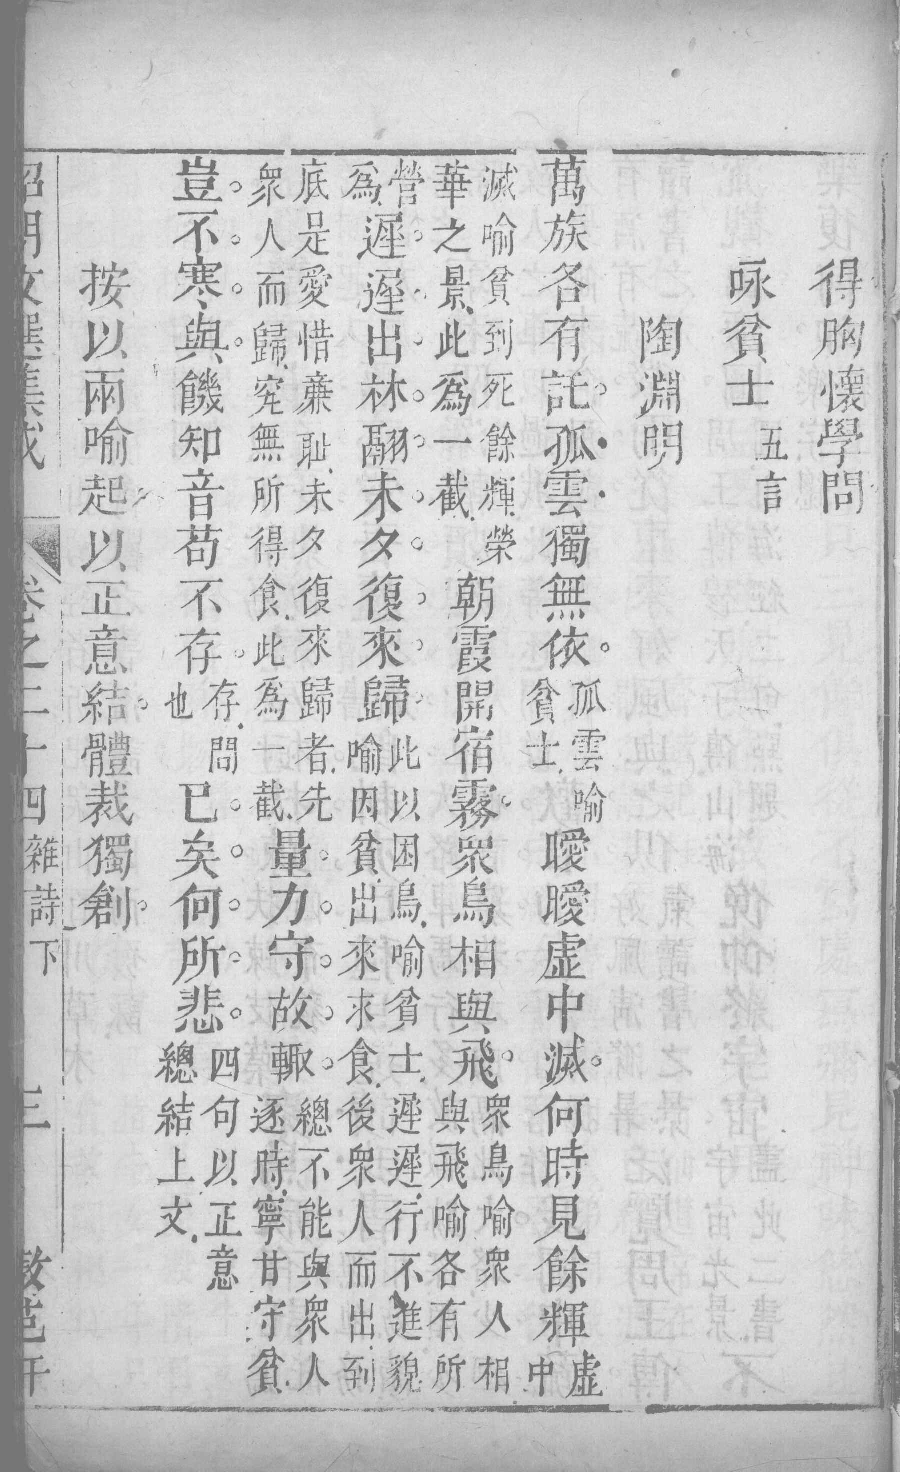 得胸懷學問
咏貧士 五言
陶淵明
萬族各有託孤雲獨無依 孤雲喻貧士 曖曖虛中滅何時見餘輝 虛中
滅喻貧到死餘輝榮華之景此為一截 朝霞開宿霧衆鳥相與飛 衆鳥喻衆人相與飛喻各有所
營為 遲遲出林翮未夕復來歸 此以困鳥喻貧士遲遲行不進貌喻因貧出來求食後衆人而出到
底是愛惜廉耻未夕復來歸者先衆人而歸究無所得食此為一截 量力守故轍 總不能與衆人逐時寧甘守貧
豈不寒與饑知音苟不存 存問也 已矣何所悲 四句以正意總結上文
按以兩喻起以正意結體裁獨創
昭明文選集成 卷之二十四 雜詩下 三